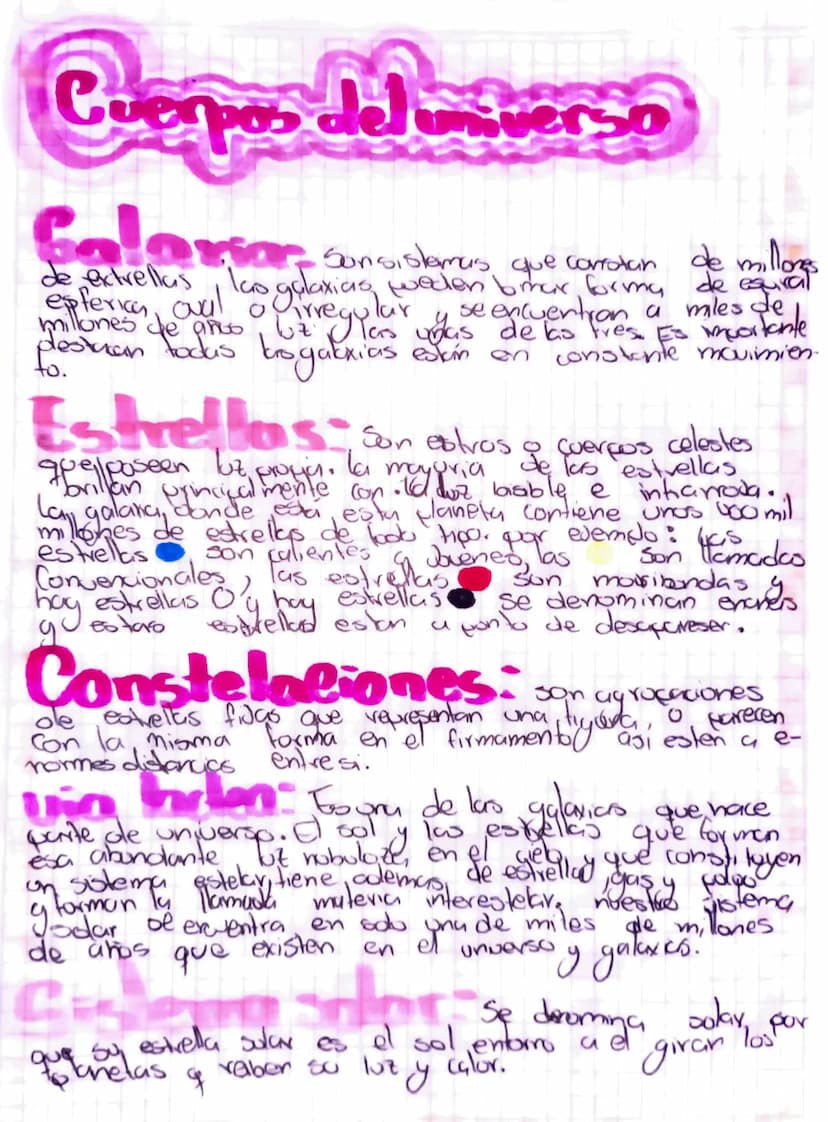 Cuerpos del universo
Galaxias. Son sistemas que constan de millones
de estrellas, las galaxias pueden tomar forma de espiral
esferica, oval o irregular y se encuentran a miles de
millones de años luz y las unas de las tres. Es importante
destacan todas las galaxias están en constante movimien-
to.
Estrellas: Son astros o cuerpos celestes
que poseen luz propia. la mayoria de las estrellas
brillan principalmente con la luz bisible e infrarroja.
La galaxia, donde esta esta planeta contiene unos 400 mil
millones de estrellas de todo tipo. por ejemplo: las
estrellas son calientes y jovenes, las son llamadas
Convencionales, las estrellas son moribundas y
hay estrellas O y hay estrellas se denominan enanas
y estas estrellas estan a punto de desapareser.
Constelaciones: son agrupaciones
de estrellas fijas que representan una figura, o parecen
con la misma forma en el firmamento así esten a e-
normes distancias entre si.
via lactea: Es una de las galaxias que hace
parte de universo. El sol y las estrellas que forman
esa abundante luz nobulosa, en el cielo y que constituyen
un sistema estelar, tiene ademas, de estrellas, gas y polvo
y forman la llamada materia interestelar, nuestro sistema
solar se encuentra en solo una de miles de millones
de años que existen en el universo y galaxias.
Sistema solar: Se denomina solar, por
que su estrella solar es el sol, entorno a el giran los
planetas q resiben su luz y calor.